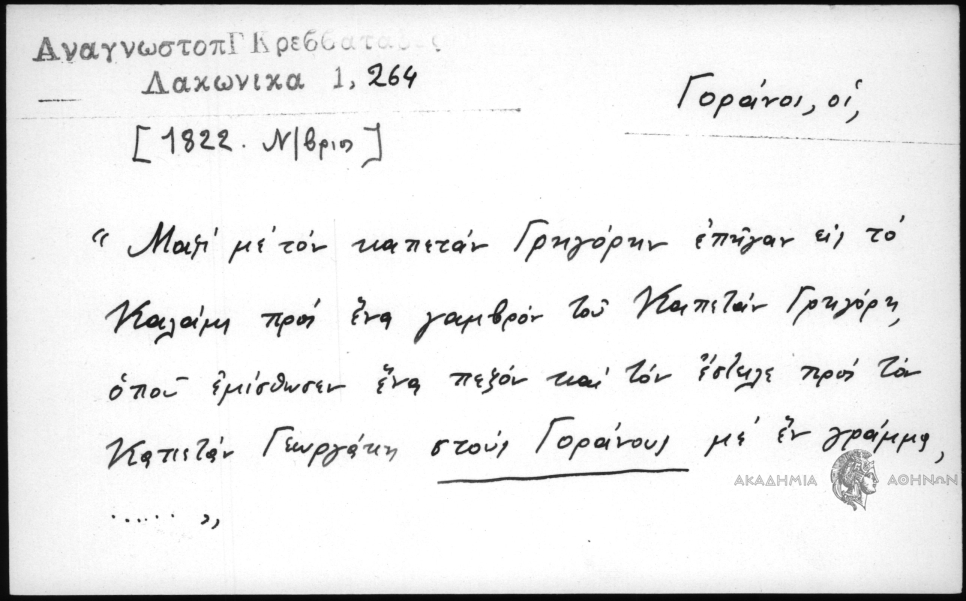 ΑναγνωστοπΓΚρεββατα
Λακωνικα 1, 264
Γοράνοι, οἱ,
[1822. Ν/βριος]
“Μαζί μέ τόν καπετάν Γρηγόρην ἐπῆγαν εἰς τό
Καλάμι πρός ἕνα γαμβρόν τοῦ Καπετάν Γρηγόρη,
ὁποῦ ἐμίσθωσεν ἕνα πεζόν καί τόν ἔστειλε πρός τόν
Καπετάν Γεωργάκη στούς Γοράνους μέ ἕν γράμμα,
......”
ΑΚΑΔΗΜΙΑ ΑΘΗΝΩΝ